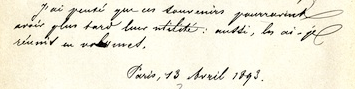 J'ai pensé que ces souvenirs pourraient
avoir plus tard leur utilité : aussi, les ai-je
réunis en volumes.
Paris, 13 Avril 1893.